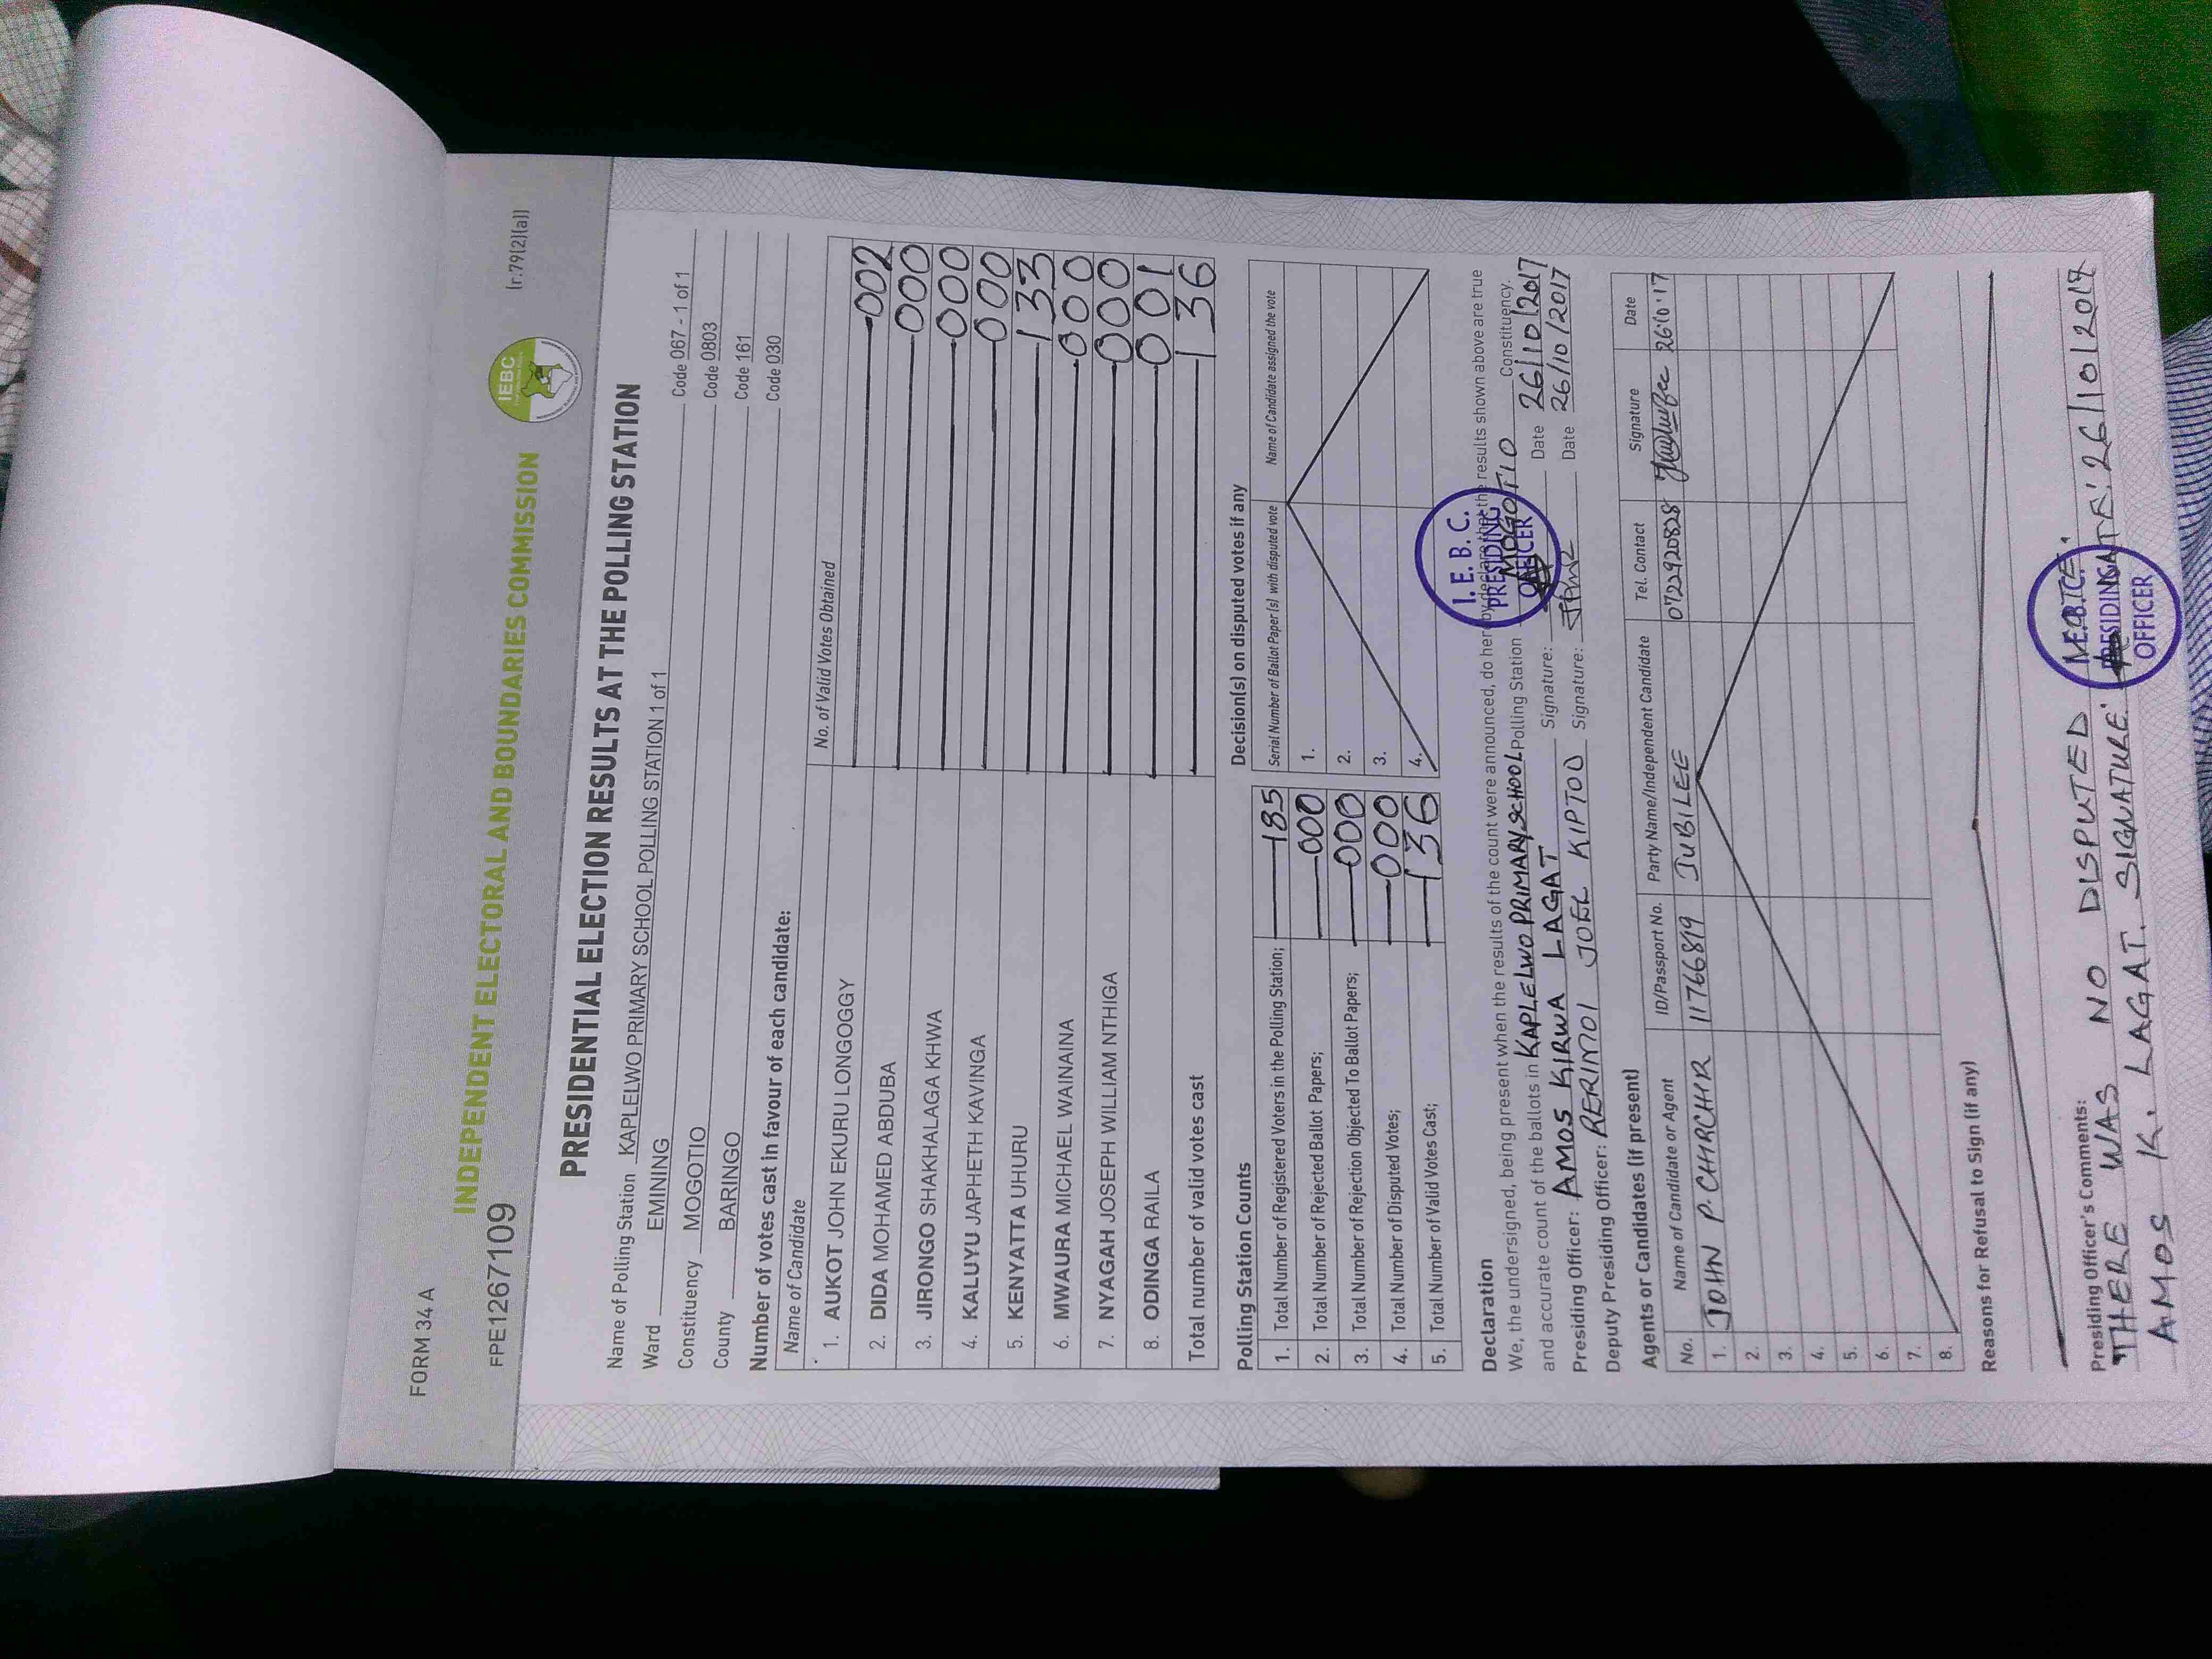 FORM 34 A
(r.79(2)(a))
INDEPENDENT ELECTORAL AND BOUNDARIES COMMISSION
IEBC
FPE1267109
PRESIDENTIAL ELECTION RESULTS AT THE POLLING STATION
Name of Polling Station KAPLELWO PRIMARY SCHOOL POLLING STATION 1 of 1 Code 067 - 1 of 1
Ward EMINING Code 0803
Constituency MOGOTIO Code 161
County BARINGO Code 030
Number of votes cast in favour of each candidate:
Name of Candidate No. of Valid Votes Obtained
1. AUKOT JOHN EKURU LONGOGGY 002
2. DIDA MOHAMED ABDUBA 000
3. JIRONGO SHAKHALAGA KHWA 000
4. KALUYU JAPHETH KAVINGA 000
5. KENYATTA UHURU 133
6. MWAURA MICHAEL WAINAINA 000
7. NYAGAH JOSEPH WILLIAM NTHIGA 000
8. ODINGA RAILA 001
Total number of valid votes cast 136
Polling Station Counts
1. Total Number of Registered Voters in the Polling Station; 185
2. Total Number of Rejected Ballot Papers; 000
3. Total Number of Rejection Objected To Ballot Papers; 000
4. Total Number of Disputed Votes; 000
5. Total Number of Valid Votes Cast; 136
Decision(s) on disputed votes if any
Serial Number of Ballot Paper (s) with disputed vote Name of Candidate assigned the vote
1.
2.
3.
4.
Declaration
We, the undersigned, being present when the results of the count were announced, do hereby declare that the results shown above are true
and accurate count of the ballots in KAPLELWO PRIMARY SCHOOL Polling Station MOGOTIO Constituency.
Presiding Officer: AMOS KIRWA LAGAT Signature: Date 26/10/2017
Deputy Presiding Officer: RERIMOI JOEL KIPTOO Signature: Date 26/10/2017
I. E. B. C.
PRESIDING
OFFICER
Agents or Candidates (if present)
No. Name of Candidate or Agent ID/Passport No. Party Name/Independent Candidate Tel. Contact Signature Date
1. JOHN P. CHIRCHIR 11766819 JUBILEE 0722920828 26.10.17
2.
3.
4.
5.
6.
7.
8.
Reasons for Refusal to Sign (if any)
Presiding Officer's Comments:
THERE WAS NO DISPUTED
AMOS K. LAGAT. SIGNATURE: DATE: 26/10/2017
I.E.B.C.
PRESIDING
OFFICER